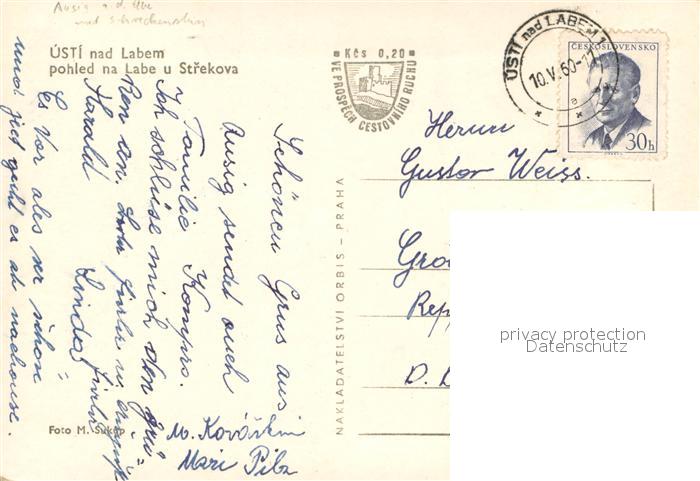 Aussig a. d. Elbe
und Schreckenstein
ÚSTÍ nad Labem
pohled na Labe u Střekova
Kčs 0,20
VE PROSPĚCH CESTOVNÍHO RUCHU
ÚSTÍ nad LABEM 1
10.V.60-11
ČESKOSLOVENSKO
30h
Herrn
Gustav Weiss.
Gro
Rep
D. D
privacy protection
Datenschutz
NAKLADATELSTVÍ ORBIS – PRAHA
Schönen Grus aus
Ausig sendet euch
Familie
Ich schlüse mich den Grü=
Ren an.
Harald Linda
Es Var ales ser schön
und jezt geht es ab nachause.
M. Kovářkem
Mari Pilz
Foto M. Sukup